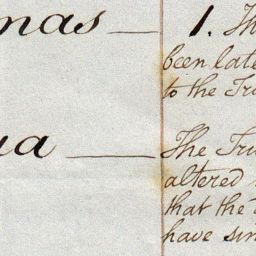 mas — 1. Th
been late
to the Tr
ua — The Tru
altered
that the
have sin